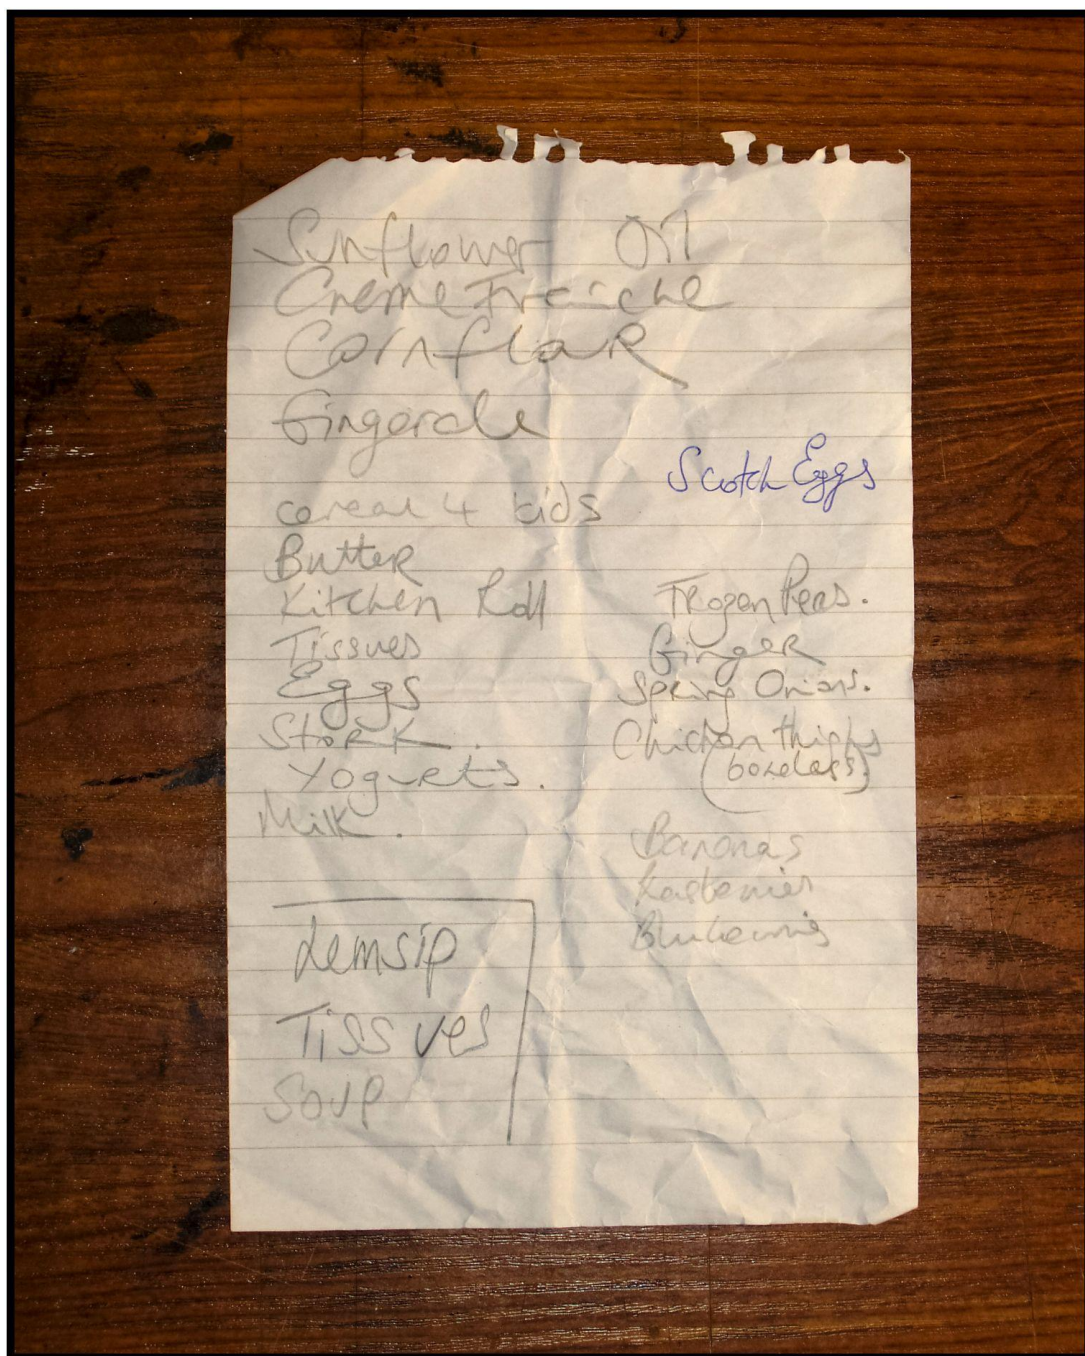 Sunflower Oil
Creme Fraiche
CornflouR
Gingerale
cereal 4 kids
ButteR
Kitchen Roll
Tissues
Eggs
StoRK.
Yogurts.
Milk.
Lemsip
Tissues
Soup
Scotch Eggs
FRozen Peas.
GingeR
Spring Onions.
Chicken thighs
(boneless)
Bananas
Rasberries
Blueberries